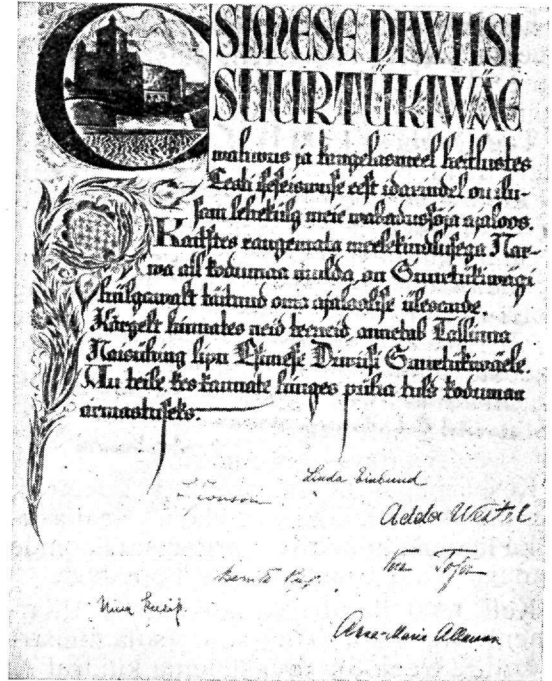 ESIMESE DIWIISI
SUURTÜKIWÄE
wahwus ja kangelasmeel heitlustes
Eesti iseseiswuse eest idarindel on ilu-
sam lehekülg meie wabadussõja ajaloos.
Kaitstes raugemata meelekindlusega Nar-
wa all kodumaa mulda, on Suurtükiwägi
hiilgawalt täitnud oma ajaloolise ülesande.
Kõrgelt hinnates neid teeneid, annetab Tallinna
Naisühing lipu Esimese Diwiisi Suurtükiwäele.
Au teile kes kannate hinges püha tuld kodumaa
armastuseks.
Linda Einbund
Adda
Anna-Marie